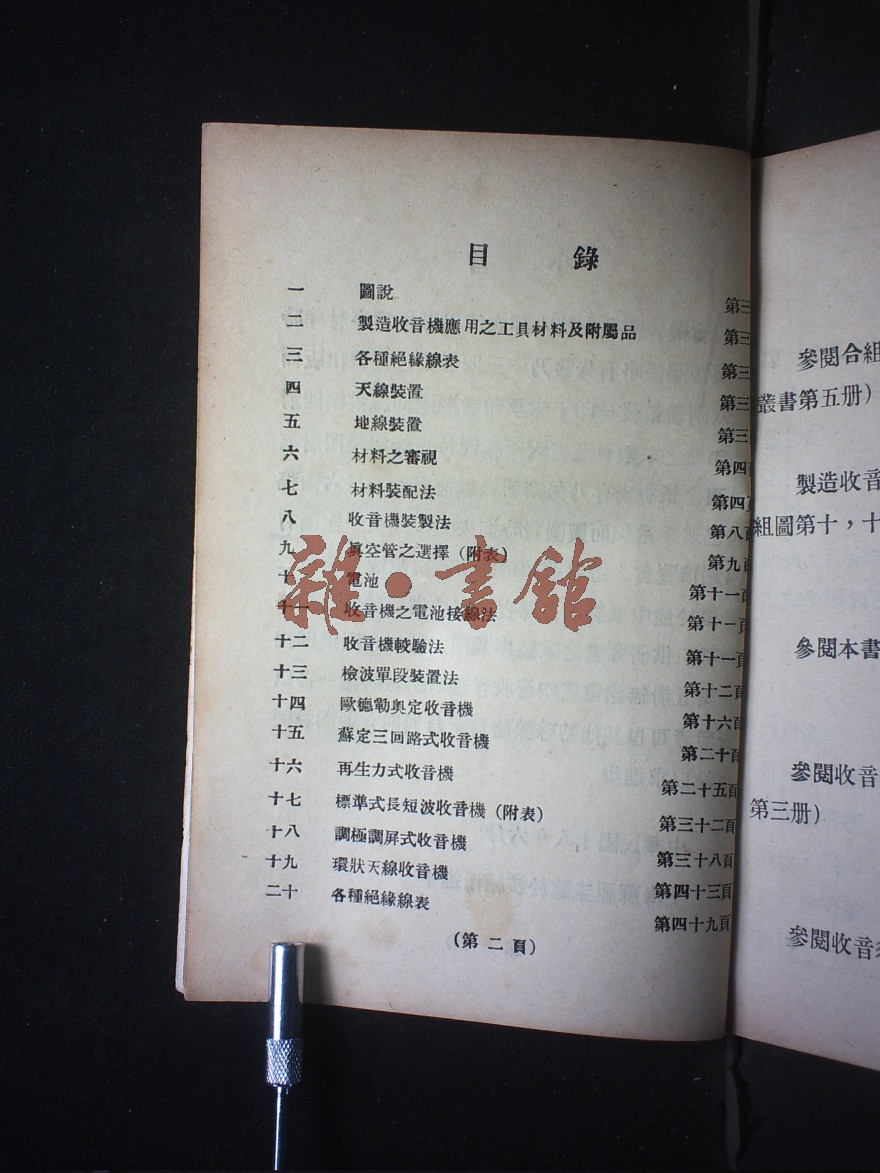 目 錄
一 圖說 第三
二 製造收音機應用之工具材料及附屬品 第三
三 各種絕緣線表 第三
四 天線裝置 第三
五 地線裝置 第三
六 材料之審視 第四頁
七 材料裝配法 第四頁
八 收音機裝製法 第八頁
九 眞空管之選擇（附表） 第九頁
十 電池 第十一頁
十一 收音機之電池接線法 第十一頁
十二 收音機較驗法 第十一頁
十三 檢波單段裝置法 第十二頁
十四 歐德勒奧定收音機 第十六頁
十五 蘇定三回路式收音機 第二十頁
十六 再生力式收音機 第二十五頁
十七 標準式長短波收音機（附表） 第三十二頁
十八 調極調屏式收音機 第三十八頁
十九 環狀天線收音機 第四十三頁
二十 各種絕緣線表 第四十九頁
（第二頁）
雜·書館
參閱合組
叢書第五册）
製造收音
組圖第十，十
參閱本書
參閱收音
第三册）
參閱收音